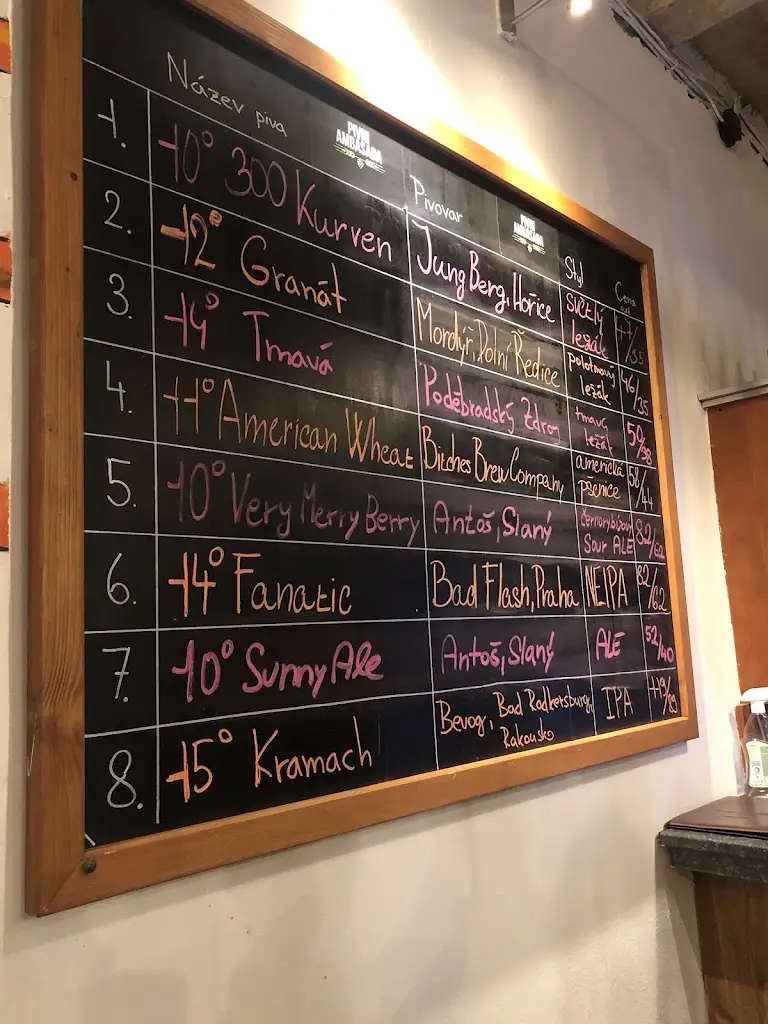 Název piva
PIVNÍ
AMBASÁDA
Pivovar
PIVNÍ
AMBASÁDA
Styl
Cena
1. 10° 300 Kurven JungBerg, Hořice světlý ležák 47/35
2. 12° Granát Mordýř, Dolní Ředice polotmavý ležák 46/35
3. 14° Tmavá Poděbradský Zdroj tmavý ležák 50/38
4. 11° American Wheat Bitches Brew Company americká pšenice 58/44
5. 10° Very Merry Berry Antoš, Slaný Sour ALE 82/62
6. 14° Fanatic Bad Flash, Praha NEIPA 82/62
7. 10° Sunny Ale Antoš, Slaný ALE 52/40
8. 15° Kramach Bevog, Bad Radkersburg, Rakousko IPA 119/89